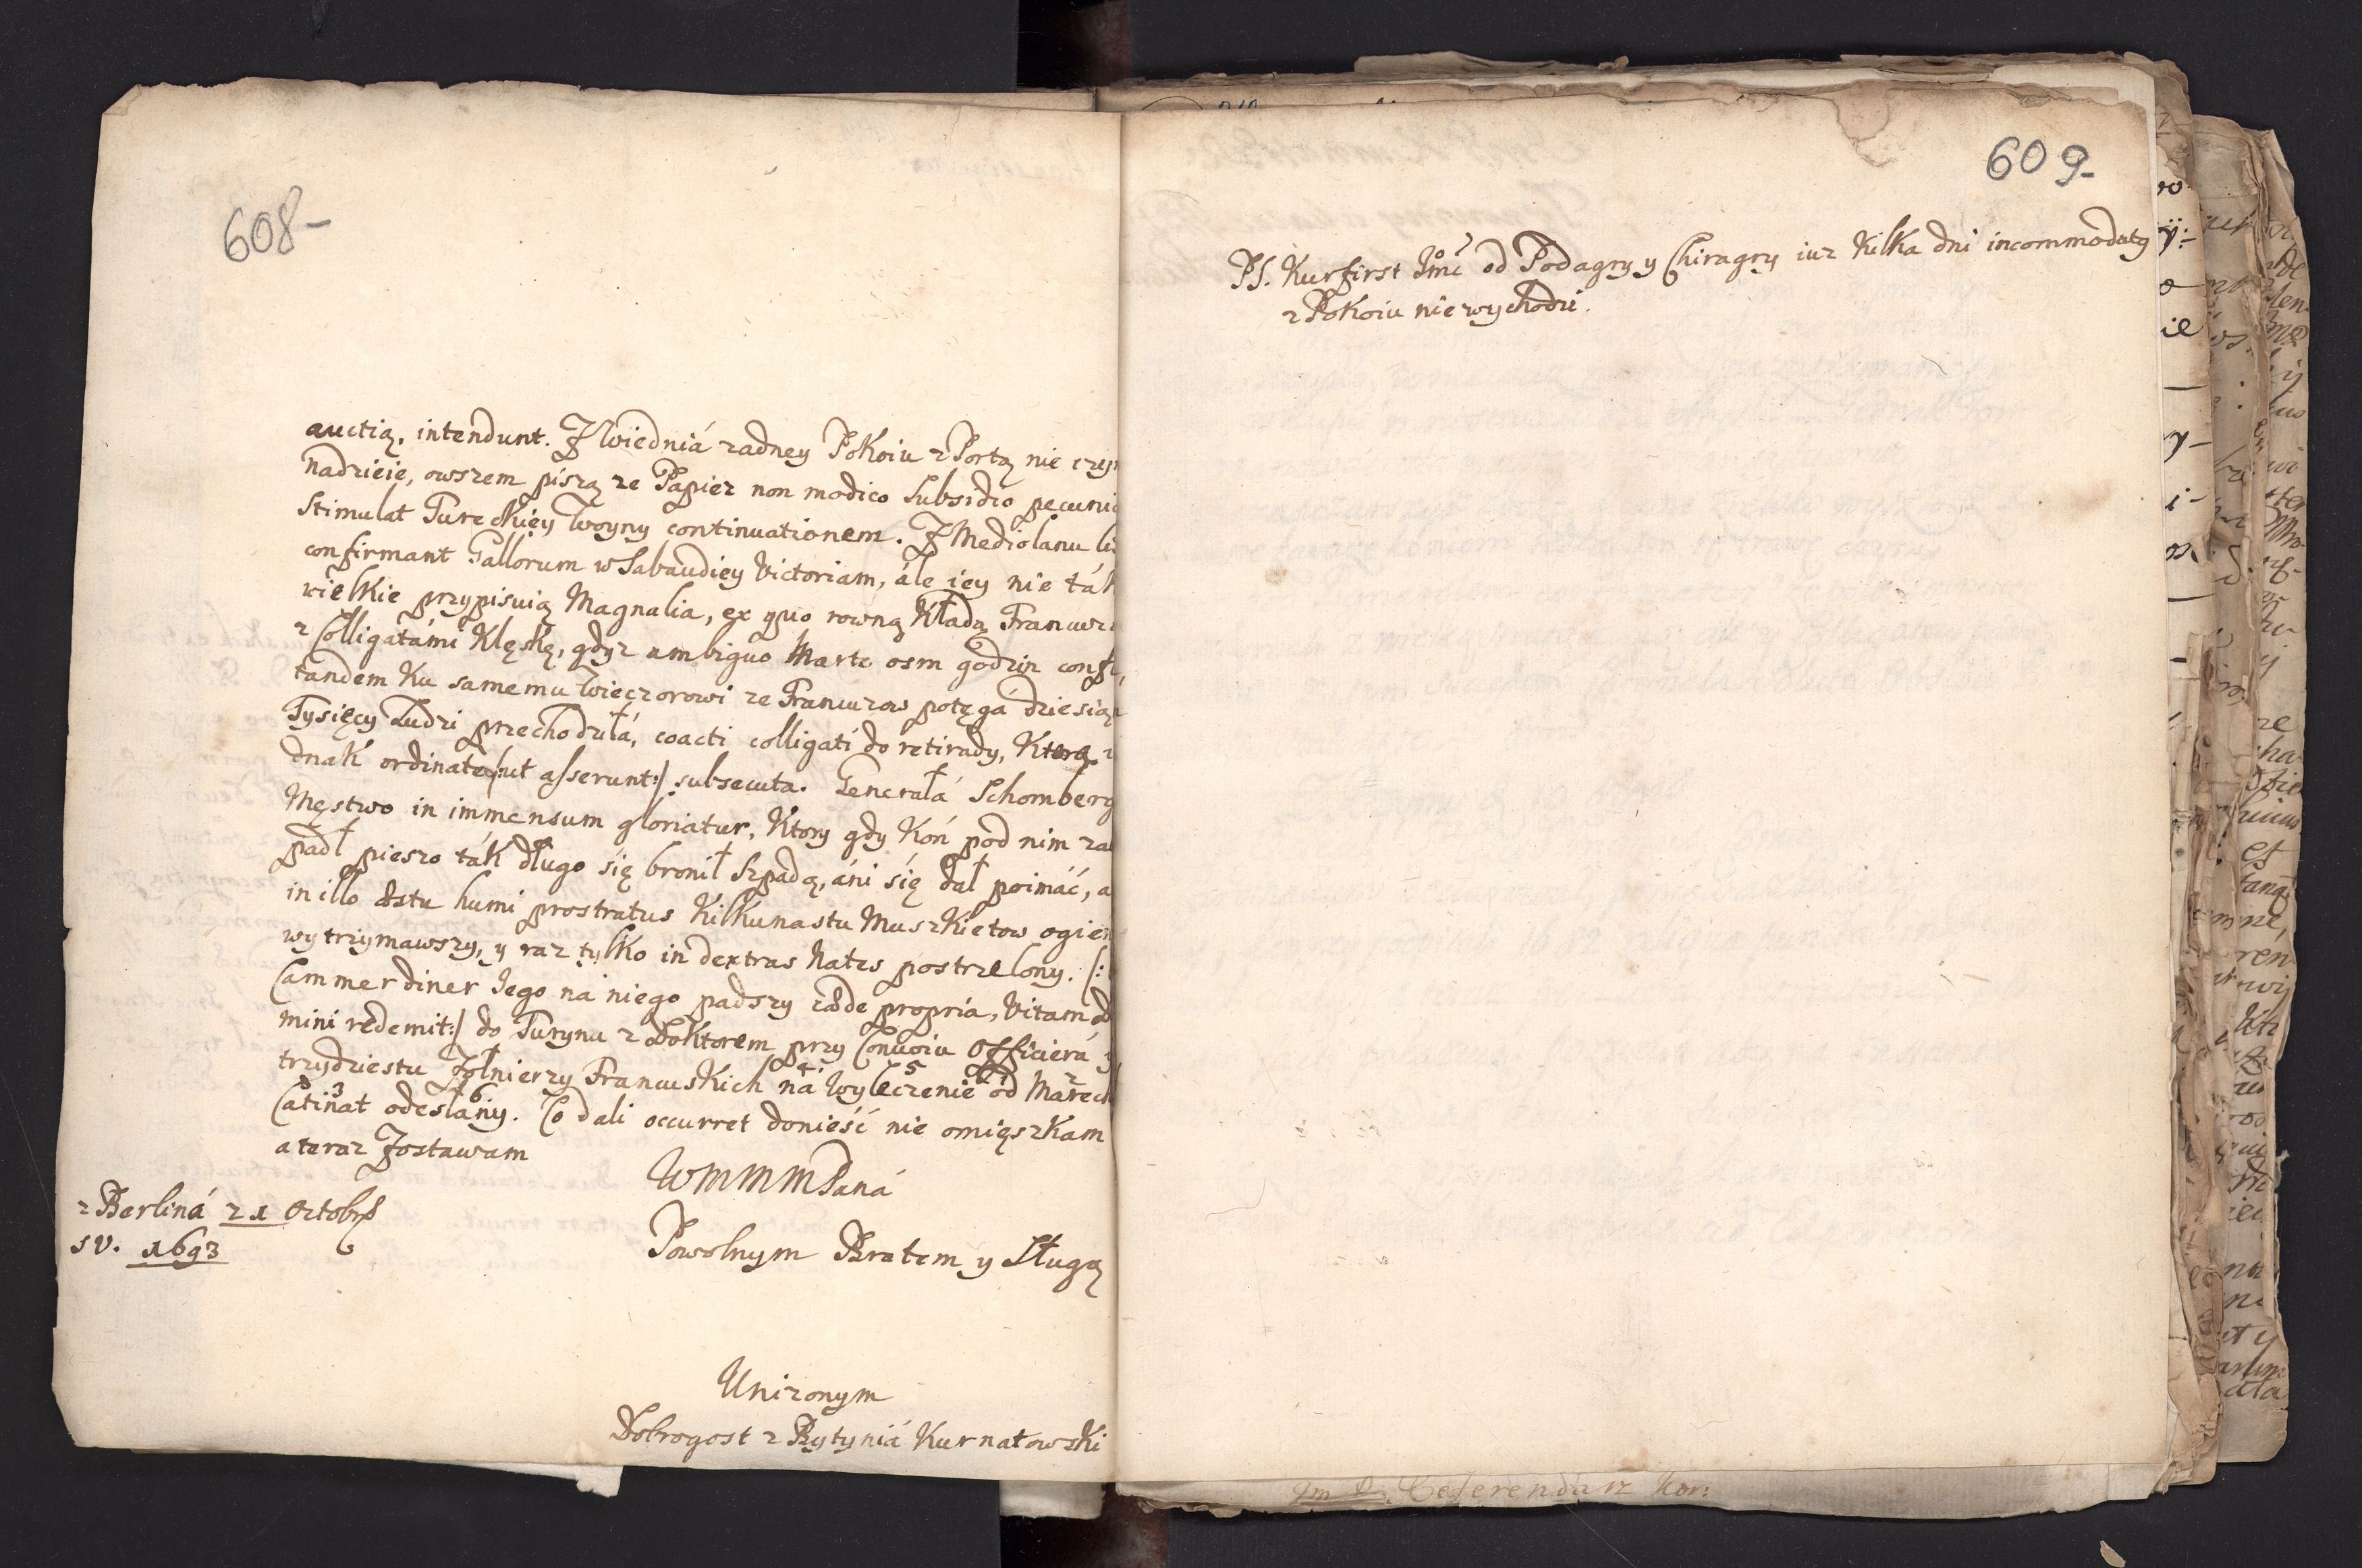 608-
auctią, intendunt. Z Wiedniá zadney Pokoiu z Portą nie
nadzieie, owszem piszą ze Papiez non modico Subsidio
Stimulat Tureckiey Woyny continuationem. Z Mediolanu
confirmant Gallorum w Sabaudiey Victoriam, ále iey nie ták
wielkie przypisuią Magnalia, ex quo rowną Kładą
z Colligatámi Klęskę, gdyz ambiguo Marte osm godzin
tandem Ku samemu Wieczorowi ze Francuzow potęgá
Tysięcy Ludzi przechodziłá, coacti colligati do retirady, Ktora
dnak ordinate /:ut asserunt:/ subsecuta. Generałá Schomberg
Męstwo in immensum gloriatur, Ktory gdy Koń pod nim
padł pieszo ták długo się bronił Szpadą, áni się dał poimáć, a
in illo æstu humi prostratus Kilkunastu Muszkietow
wytrzymawszy, y raz tylko in dextras Nates postrzelony. /:
Cammerdiner Iego ná niego padszy cæde propria, Vitam
mini redemit:/ do Turynu z Doktorem przy Conuoiu Officierá
trzydziestu Zołnierzy Francuskich 4 ná 5 Wyleczenie 1 od 2
3 Catinat 6 odesłány. Co dali occurret donieść nie omięszkam
a teraz Zostawam
WMMMPaná
z Berliná 21 Octobr
sv. 1693
Powolnym Bratem y Sługą
Unizonym
Dobrogost z Bytyniá Kurnatowski
609-
PS. Kurfirst Jmć od Podagry y Chiragry iuz Kilka dni incommodaty
z Pokoiu nie wychodzi.